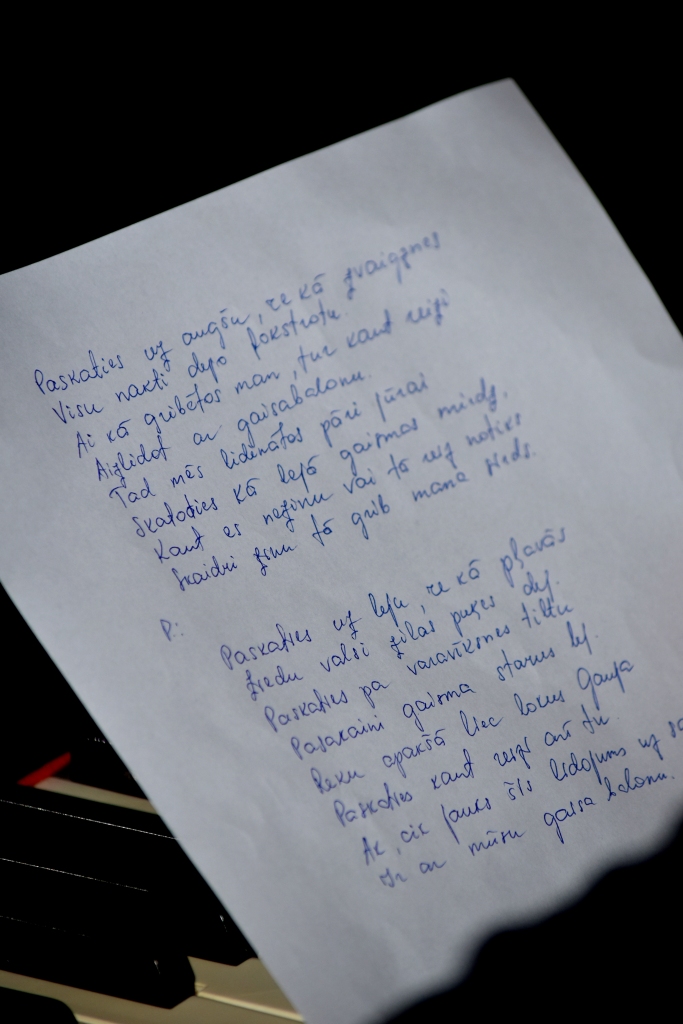 Paskaties uz augšu, re kā zvaigznes
Visu nakti dejo fokstrotu.
Ai kā gribētos man, tur kaut reizi
Aizlidot ar gaisabalonu.
Tad mēs lidinātos pāri jūrai
Skatoties kā lejā gaismas mirdz,
Kaut es nezinu vai tā reiz notiks
Skaidri zinu tā grib mana sirds.
P.:
Paskaties uz leju, re kā pļavās
Ziedu valsi zilās puķes dej.
Paskaties pa varavīksnes tiltu
Pasakaini gaisma starus lej.
Reku apakšā liec lokus Gauja
Paskaties kaut reizi arī tu.
Ak, cik jauks šis lidojums uz
Ir ar mūsu gaisa balonu.